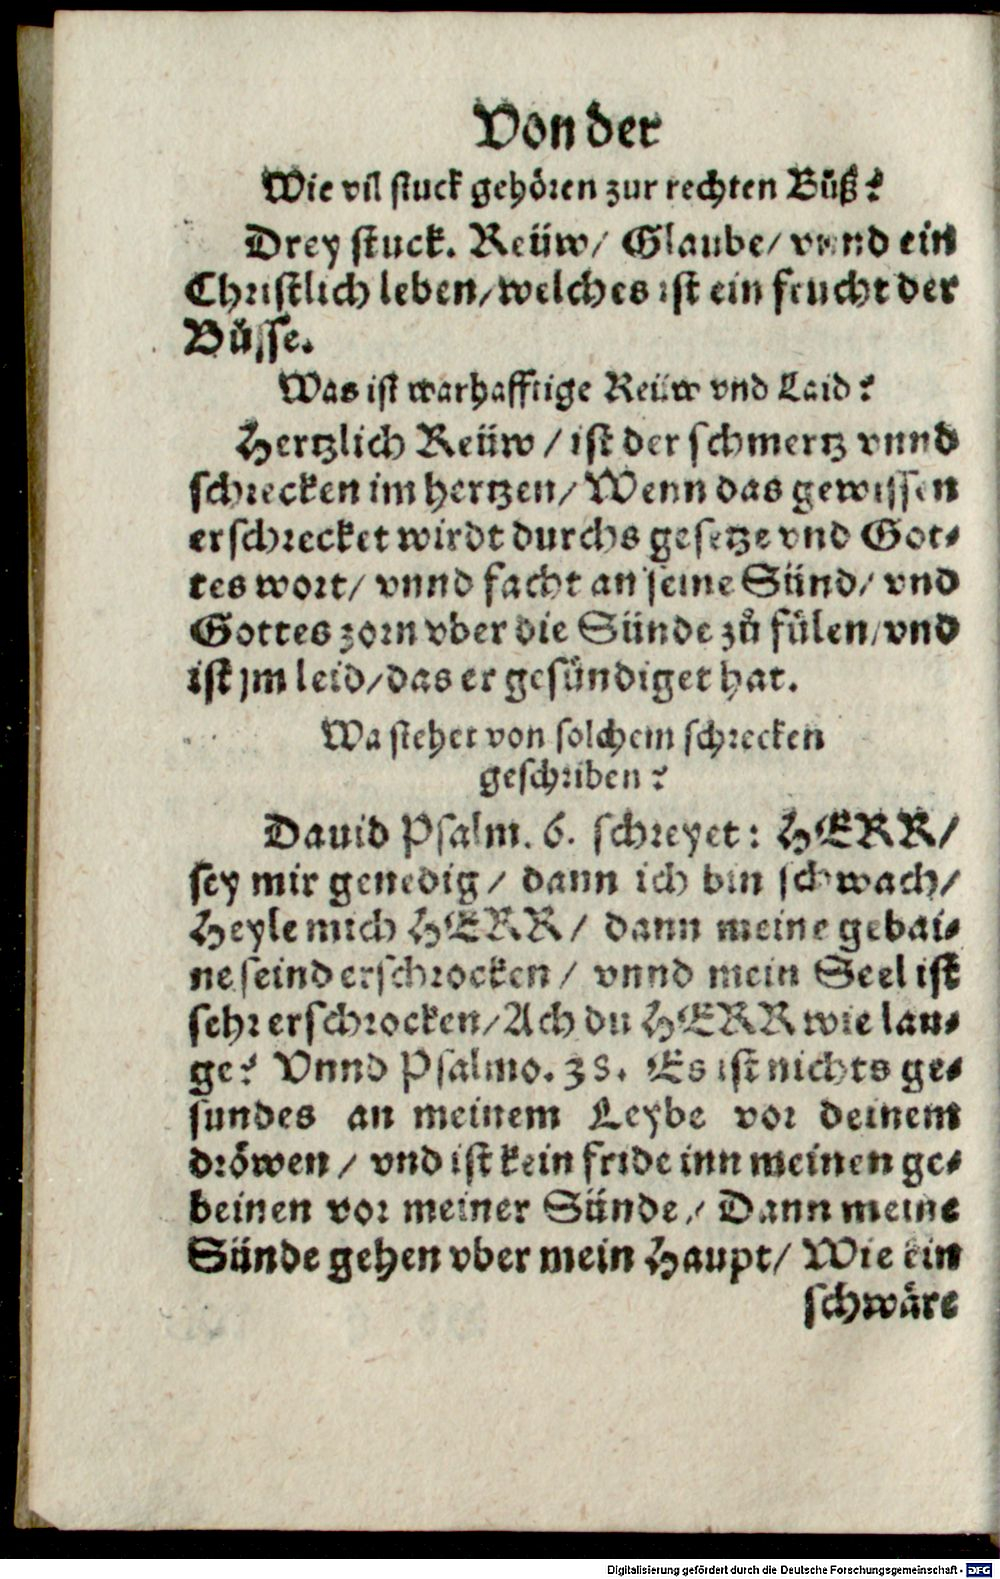 Von der
Wie vil stuck gehören zur rechten Bůß?
Drey stuck. Reüw/ Glaube/ vnnd ein
Christlich leben/welches ist ein frucht der
Bůsse.
Was ist warhafftige Reüw vnd Laid?
Hertzlich Reüw / ist der schmertz vnnd
schrecken im hertzen/ Wenn das gewissen
erschrecket wirdt durchs gesetze vnd Got⸗
tes wort/ vnnd facht an seine Sünd/ vnd
Gottes zorn vber die Sünde zů fülen/vnd
ist jm leid/das er gesündiget hat.
Wa stehet von solchem schrecken
geschriben?
Dauid Psalm. 6. schreyet: HERR/
sey mir genedig/ dann ich bin schwach/
Heyle mich HERR/ dann meine gebai⸗
ne seind erschrocken/ vnnd mein Seel ist
sehr erschrocken/Ach du HERR wie lan⸗
ge? Vnnd Psalmo. 38. Es ist nichts ge⸗
sundes an meinem Leybe vor deinem
dröwen/ vnd ist kein fride inn meinen ge⸗
beinen vor meiner Sünde/ Dann meine
Sünde gehen vber mein Haupt/ Wie ein
schwäre
Digitalisierung gefördert durch die Deutsche Forschungsgemeinschaft - DFG